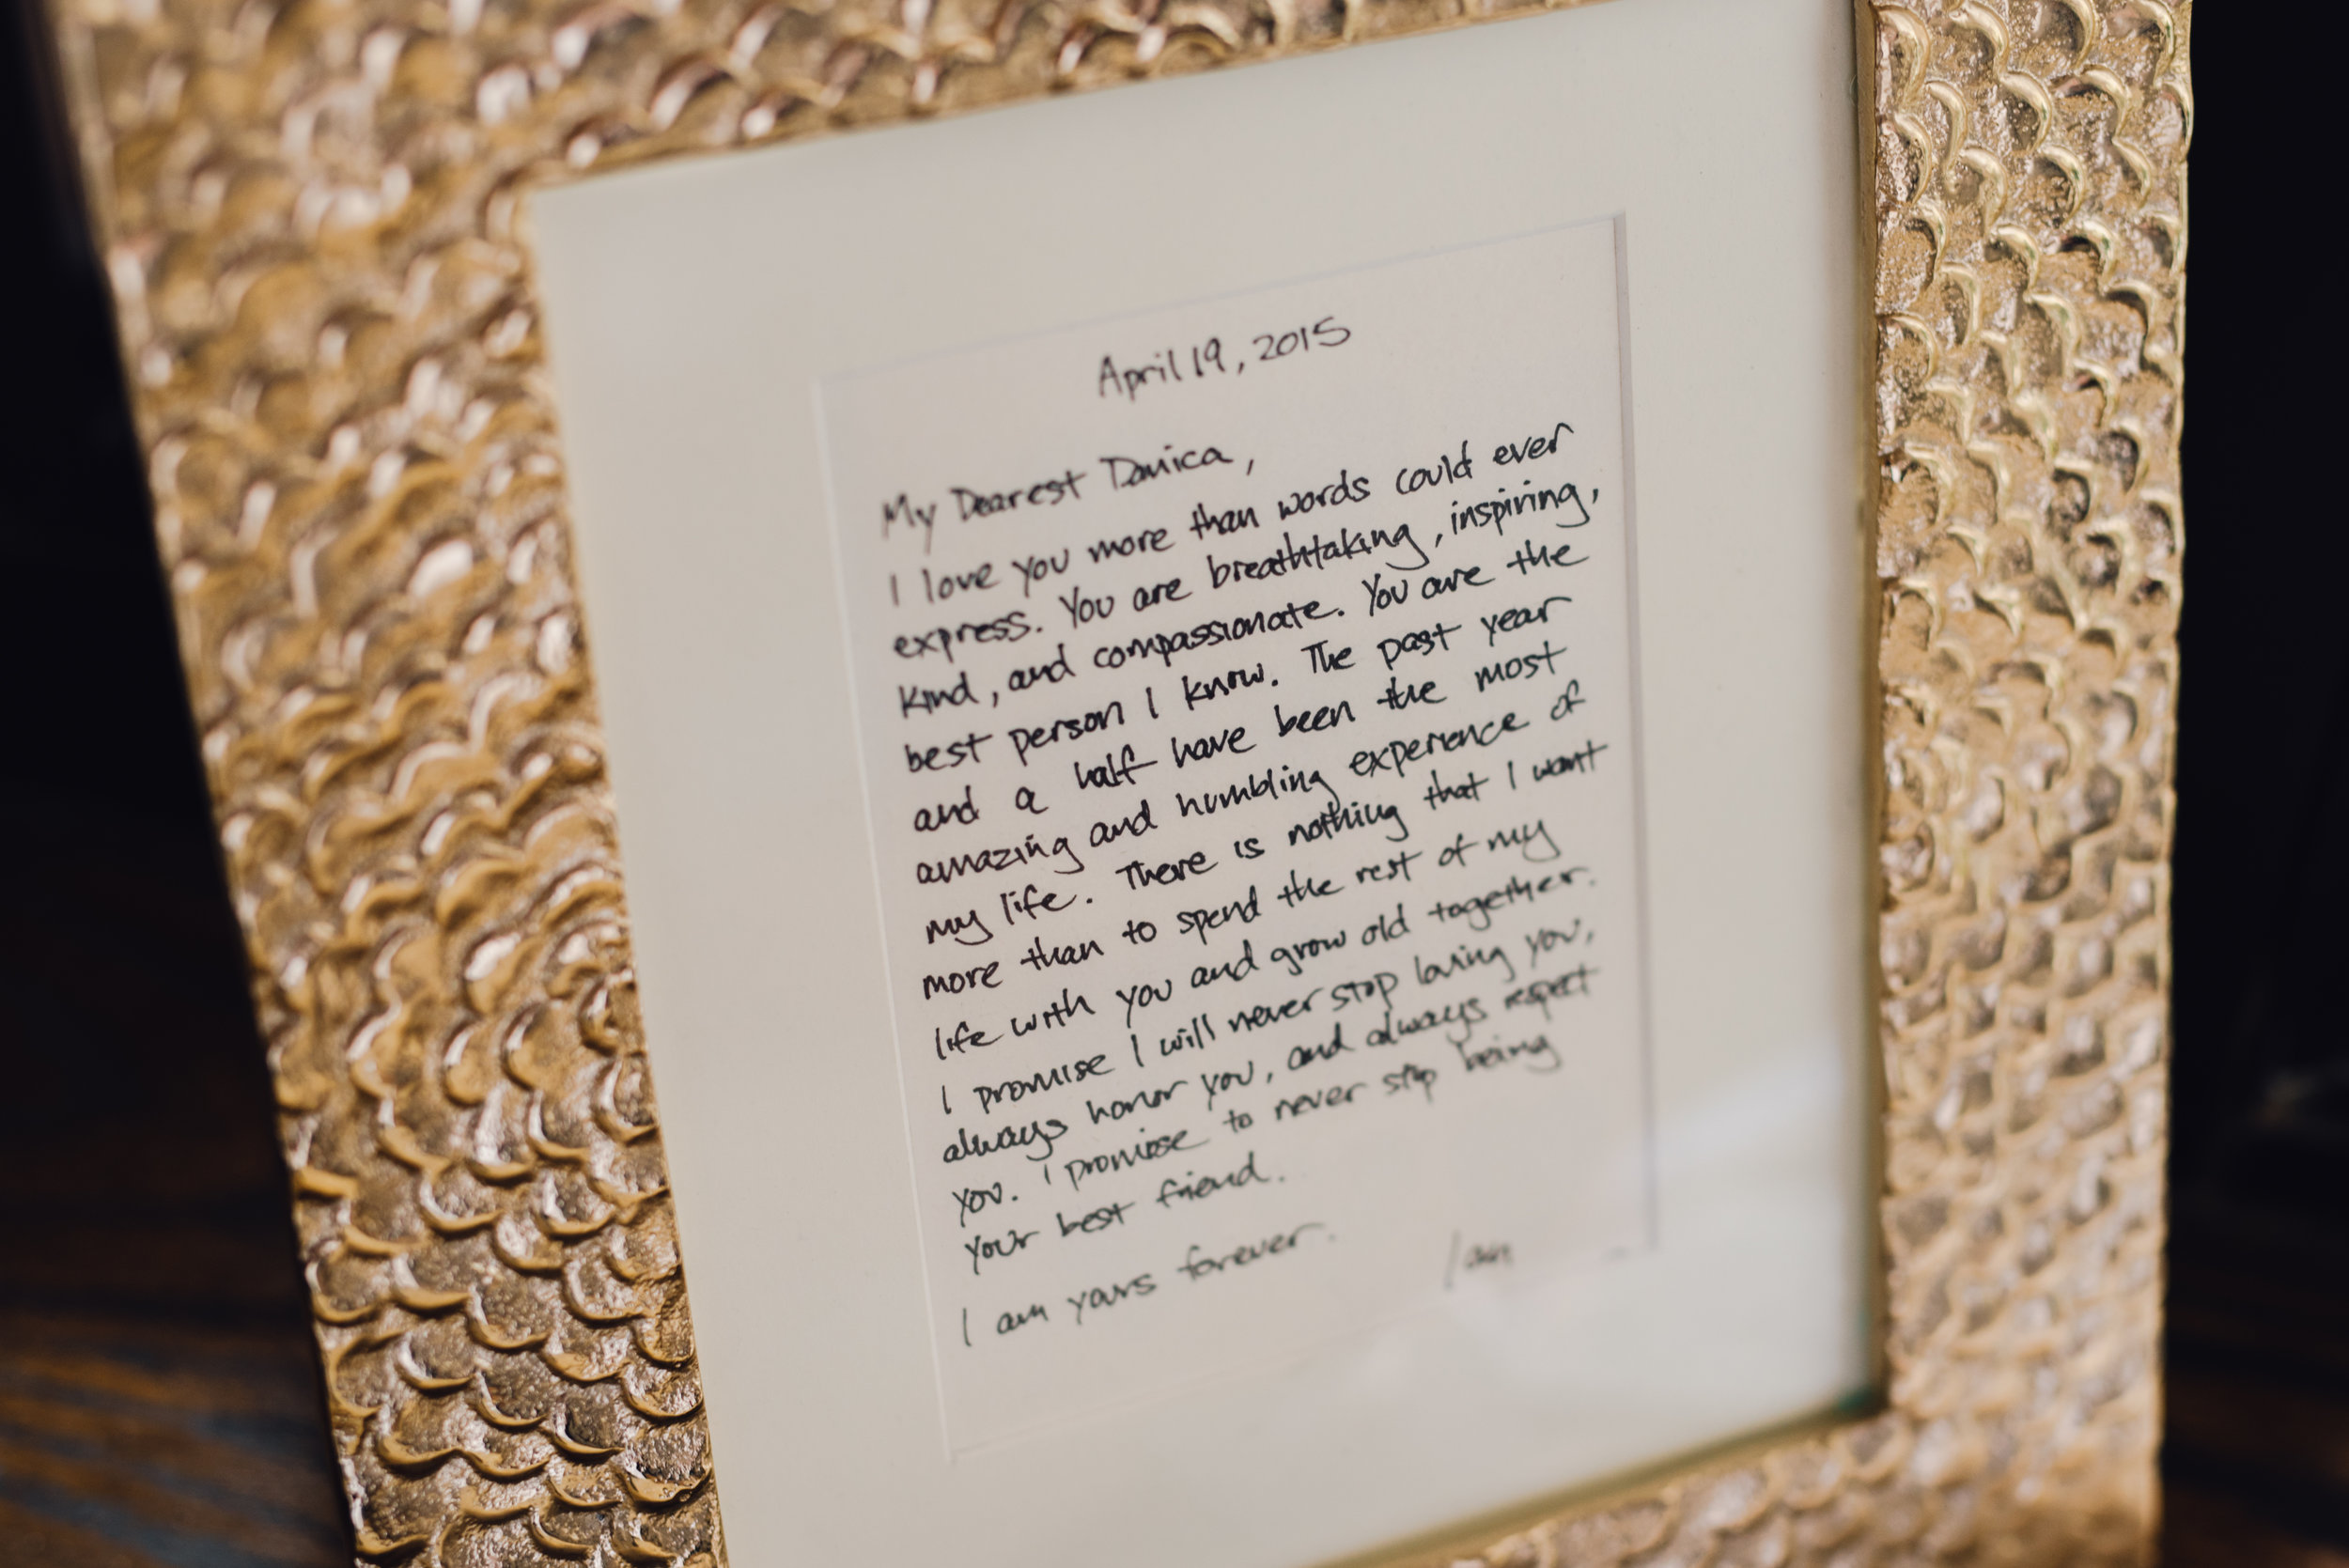 April 19, 2015
My Dearest Danica,
I love you more than words could ever
express. You are breathtaking, inspiring,
kind, and compassionate. You are the
best person I know. The past year
and a half have been the most
amazing and humbling experience of
my life. There is nothing that I want
more than to spend the rest of my
life with you and grow old together.
I promise I will never stop loving you,
always honor you, and always respect
you. I promise to never stop being
your best friend.
I am yours forever.